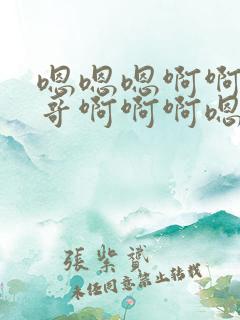 嗯嗯嗯啊啊
哥啊啊啊嗯
張紫贇
未经同意禁止转载